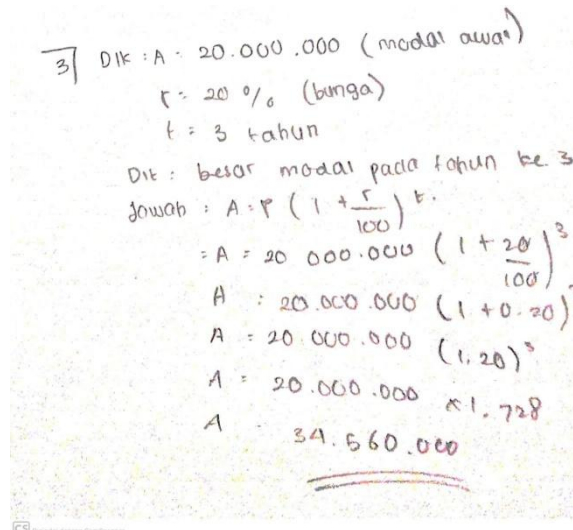 3] Dik : A = 20.000.000 (modal awal)
r = 20 % (bunga)
t = 3 tahun
Dit : besar modal pada tahun ke 3
Jawab : A = P (1 + r/100) t.
= A = 20 000.000 (1 + 20/100)³
A = 20.000.000 (1 + 0.20)
A = 20.000.000 (1,20)³
A = 20.000.000 x 1.728
A 34.560.000